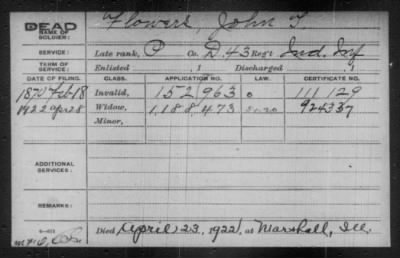 DEAD Flowers, John T
NAME OF SOLDIER:
SERVICE: Late rank, P Co. D. 43 Regt Ind. Inf
TERM OF SERVICE: Enlisted , 1 Discharged , 1
DATE OF FILING. CLASS. APPLICATION NO. LAW. CERTIFICATE NO.
1870 Feb 18 Invalid, 152,963 0 111 129
1922 Apr 28 Widow, 1,188,473 924337
Minor,
ADDITIONAL SERVICES:
REMARKS:
Died April 23, 1922, at Marshall, Ill.